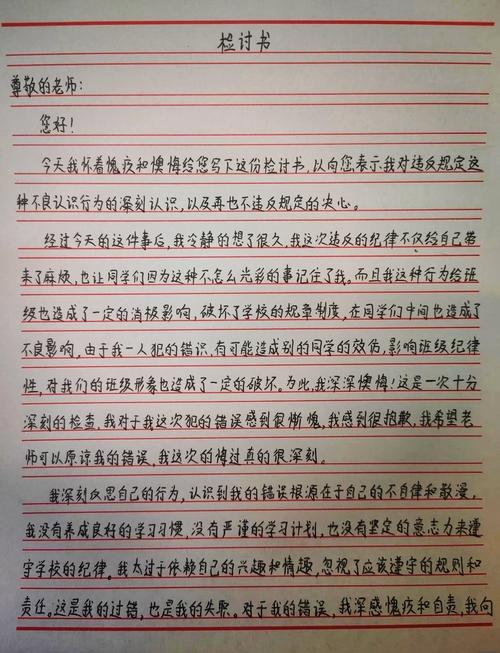 检讨书
尊敬的老师:
您好!
今天我怀着愧疚和懊悔给您写下这份检讨书,以向您表示我对违反规定这
种不良认识行为的深刻认识,以及再也不违反规定的决心。
经过今天的这件事后,我冷静的想了很久,我这次违反的纪律不仅给自己带
来了麻烦,也让同学们因为这种不怎么光彩的事记住了我。而且我这种行为给班
级也造成了一定的消极影响,破坏了学校的规章制度,在同学们中间也造成了
不良影响,由于我一人犯的错误,有可能造成别的同学的效仿,影响班级纪律
性,对我们的班级形象也造成了一定的破坏。为此,我深深懊悔!这是一次十分
深刻的检查,我对于我这次犯的错误感到很惭愧,我感到很抱歉,我希望老
师可以原谅我的错误,我这次的悔过真的很深刻。
我深刻反思自己的行为,认识到我的错误根源在于自己的不自律和散漫,
我没有养成良好的学习习惯,没有严谨的学习计划,也没有坚定的意志力来遵
守学校的纪律。我太过于依赖自己的兴趣和情趣,忽视了应该遵守的规则和
责任。这是我的过错,也是我的失职。对于我的错误,我深感愧疚和自责,我向